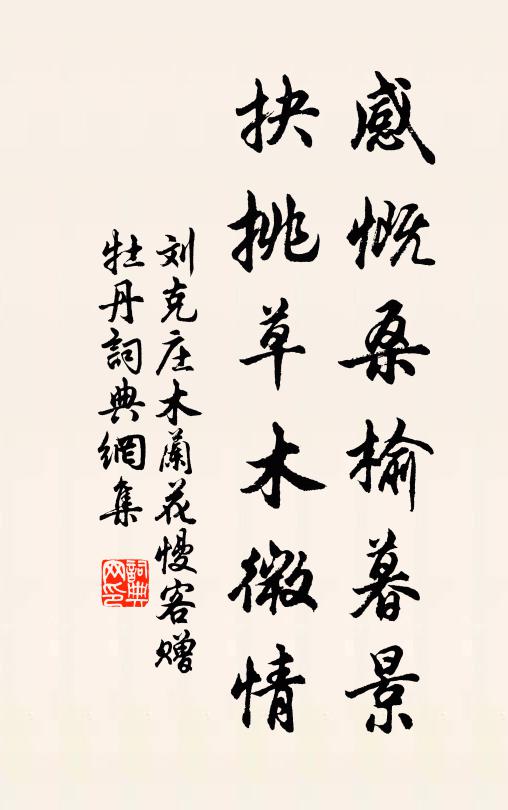 感慨桑榆暮景
抉挑草木微情
刘克庄木蘭花慢客赠
牡丹詞典網集
詞典网印